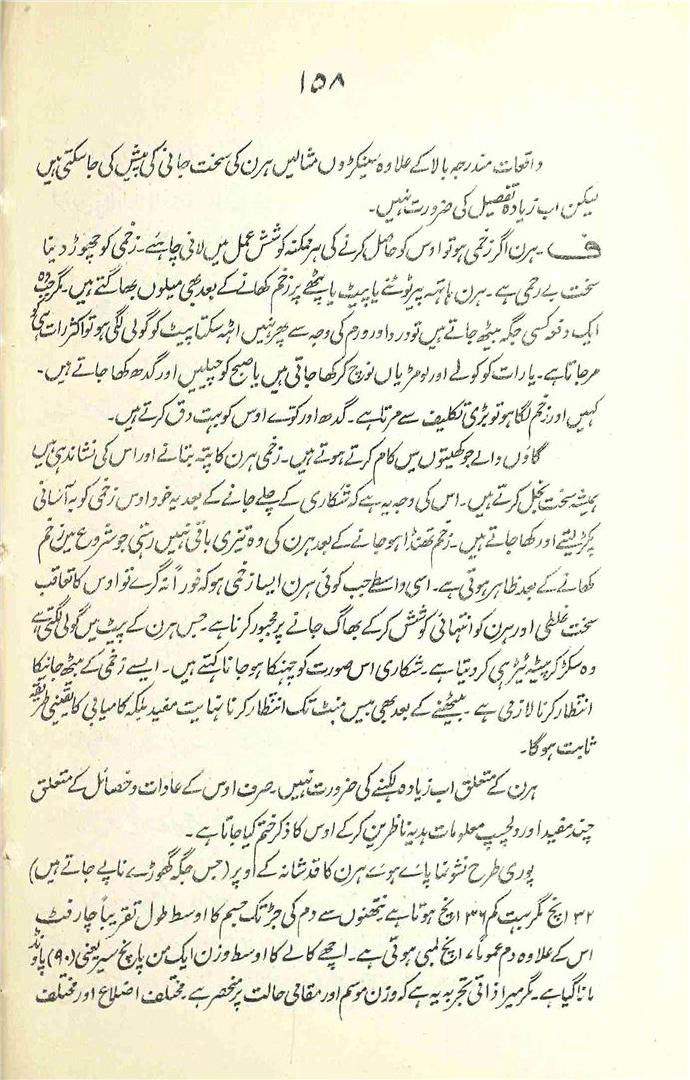 ۱۵۸
واقعات مندرجہ بالا کے علاوہ سینکڑوں مثالیں ہرن کی سخت جانی کی پیش کی جا سکتی ہیں
لیکن اب زیادہ تفصیل کی ضرورت نہیں۔
ف ۔ ہرن اگر زخمی ہو تو اوس کو حاصل کرنے کی ہر ممکنہ کوشش عمل میں لانی چاہئے۔ زخمی کو چھوڑ دینا
سخت بے رحمی ہے۔ ہرن ہاتہہ پیر ٹوٹنے یا پیٹ یا پٹھے پر زخم کھانے کے بعد بھی میلوں بھاگتے ہیں۔ مگر جب وہ
ایک دفعہ کسی جگہ بیٹھ جاتے ہیں تو درد اور ورم کی وجہ سے پھر نہیں اٹہہ سکتا پیٹ کو گولی لگی ہو تو اکثر رات ہی کو
مر جاتا ہے۔ یا رات کو کولے اور لومڑیاں نوچ کر کھا جاتی ہیں یا صبح کو چیلیں اور گدھ کھا جاتے ہیں۔
کہیں اور زخم لگا ہو تو بڑی تکلیف سے مرتا ہے۔ گدھ اور کوے اوس کو بہت دق کرتے ہیں۔
گاؤں والے جو کھیتوں میں کام کرتے ہوتے ہیں۔ زخمی ہرن کا پتہ بتانے اور اس کی نشاندہی میں
ہمیشہ سخت بخل کرتے ہیں۔ اس کی وجہ یہ ہے کہ شکاری کے چلے جانے کے بعد یہ خود اوس زخمی کو بہ آسانی
پکڑ لیتے اور کھا جاتے ہیں۔ زخم ٹھنڈا ہو جانے کے بعد ہرن کی وہ تیزی باقی نہیں رہتی جو شروع میں زخم
کھانے کے بعد ظاہر ہوتی ہے۔ اسی واسطے جب کوئی ہرن ایسا زخمی ہو کہ فوراً نہ گرے تو اوس کا تعاقب
سخت غلطی اور ہرن کو انتہائی کوشش کرکے بھاگ جانے پر مجبور کرنا ہے۔ جس ہرن کے پیٹ میں گولی لگتی ہے
وہ سکڑ کر پیٹہہ ٹیڑہی کر دیتا ہے۔ شکاری اس صورت کو چہنکا ہو جانا کہتے ہیں۔ ایسے زخمی کے بیٹھ جانیکا
انتظار کرنا لازمی ہے۔ بیٹھنے کے بعد بھی بیس منٹ تک انتظار کرنا نہایت مفید بلکہ کامیابی کا یقینی طریقہ
ثابت ہوگا۔
ہرن کے متعلق اب زیادہ لکہنے کی ضرورت نہیں۔ صرف اوس کے عادات و خصائل کے متعلق
چند مفید اور دلچسپ معلومات ہدیہ ناظرین کرکے اوس کا ذکر ختم کیا جاتا ہے۔
پوری طرح نشونما پاے ہوے ہرن کا قد شانہ کے اوپر (جس جگہ گھوڑے ناپے جاتے ہیں)
۳۲ انچ مگر بہت کم ۳۶ انچ ہوتا ہے نتھنوں سے دم کی جڑ تک جسم کا اوسط طول تقریباً چار فٹ
اس کے علاوہ دم عموماً ۷ انچ لمبی ہوتی ہے۔ اچھے کالے کا اوسط وزن ایک من پانچ سیر یعنی (۹۰) پاونڈ
مانا گیا ہے۔ مگر میرا ذاتی تجربہ یہ ہے کہ وزن موسم اور مقامی حالت پر منحصر ہے۔ مختلف اضلاع اور مختلف